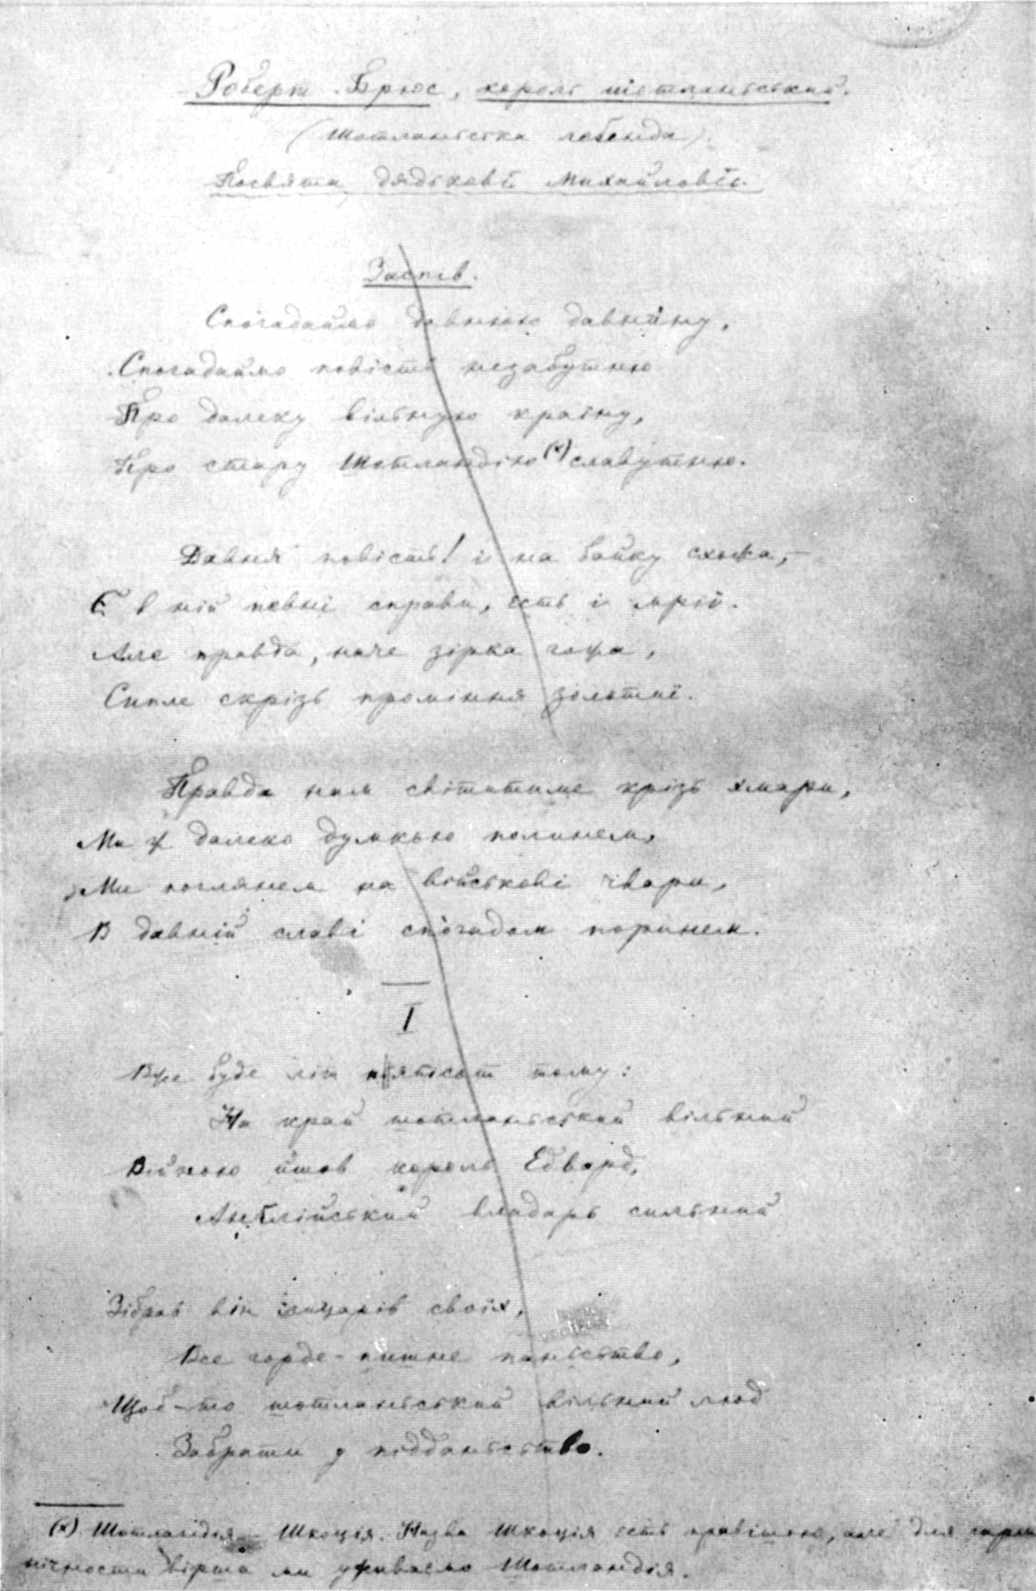 Роберт Брюс, король шотланьський.
(Шотланьська легенда).
Посвята дядькові Михайлові.
Заспів.
Спогадаймо давнюю давнину,
Спогадаймо повість незабутню
Про далеку вільную країну,
Про стару Шотландію (х) славутню.
Давня повість! і на байку схожа,—
Є в ній певні справи, єсть і мрії.
Але правда, наче зірка гожа,
Сипле скрізь проміння золотиї.
Правда нам світитиме крізь хмари,
Ми ж далеко думкою полинем,
Ми поглянем на військові чвари,
В давній славі спогадом поринем.
I
Вже буде літ п'ятьсот тому:
На край шотланьський вільний
Війною йшов король Едвард,
Англійський владарь сильний
Зібрав він лицарів своїх,
Все горде-пишне паньство,
Щоб-то шотланьський вільний люд
Забрати у підданьство.
(х) Шотландія – Шкоція. Назва Шкоція єсть правішою, але для гармо
нічности вірша ми уживаємо Шотландія.